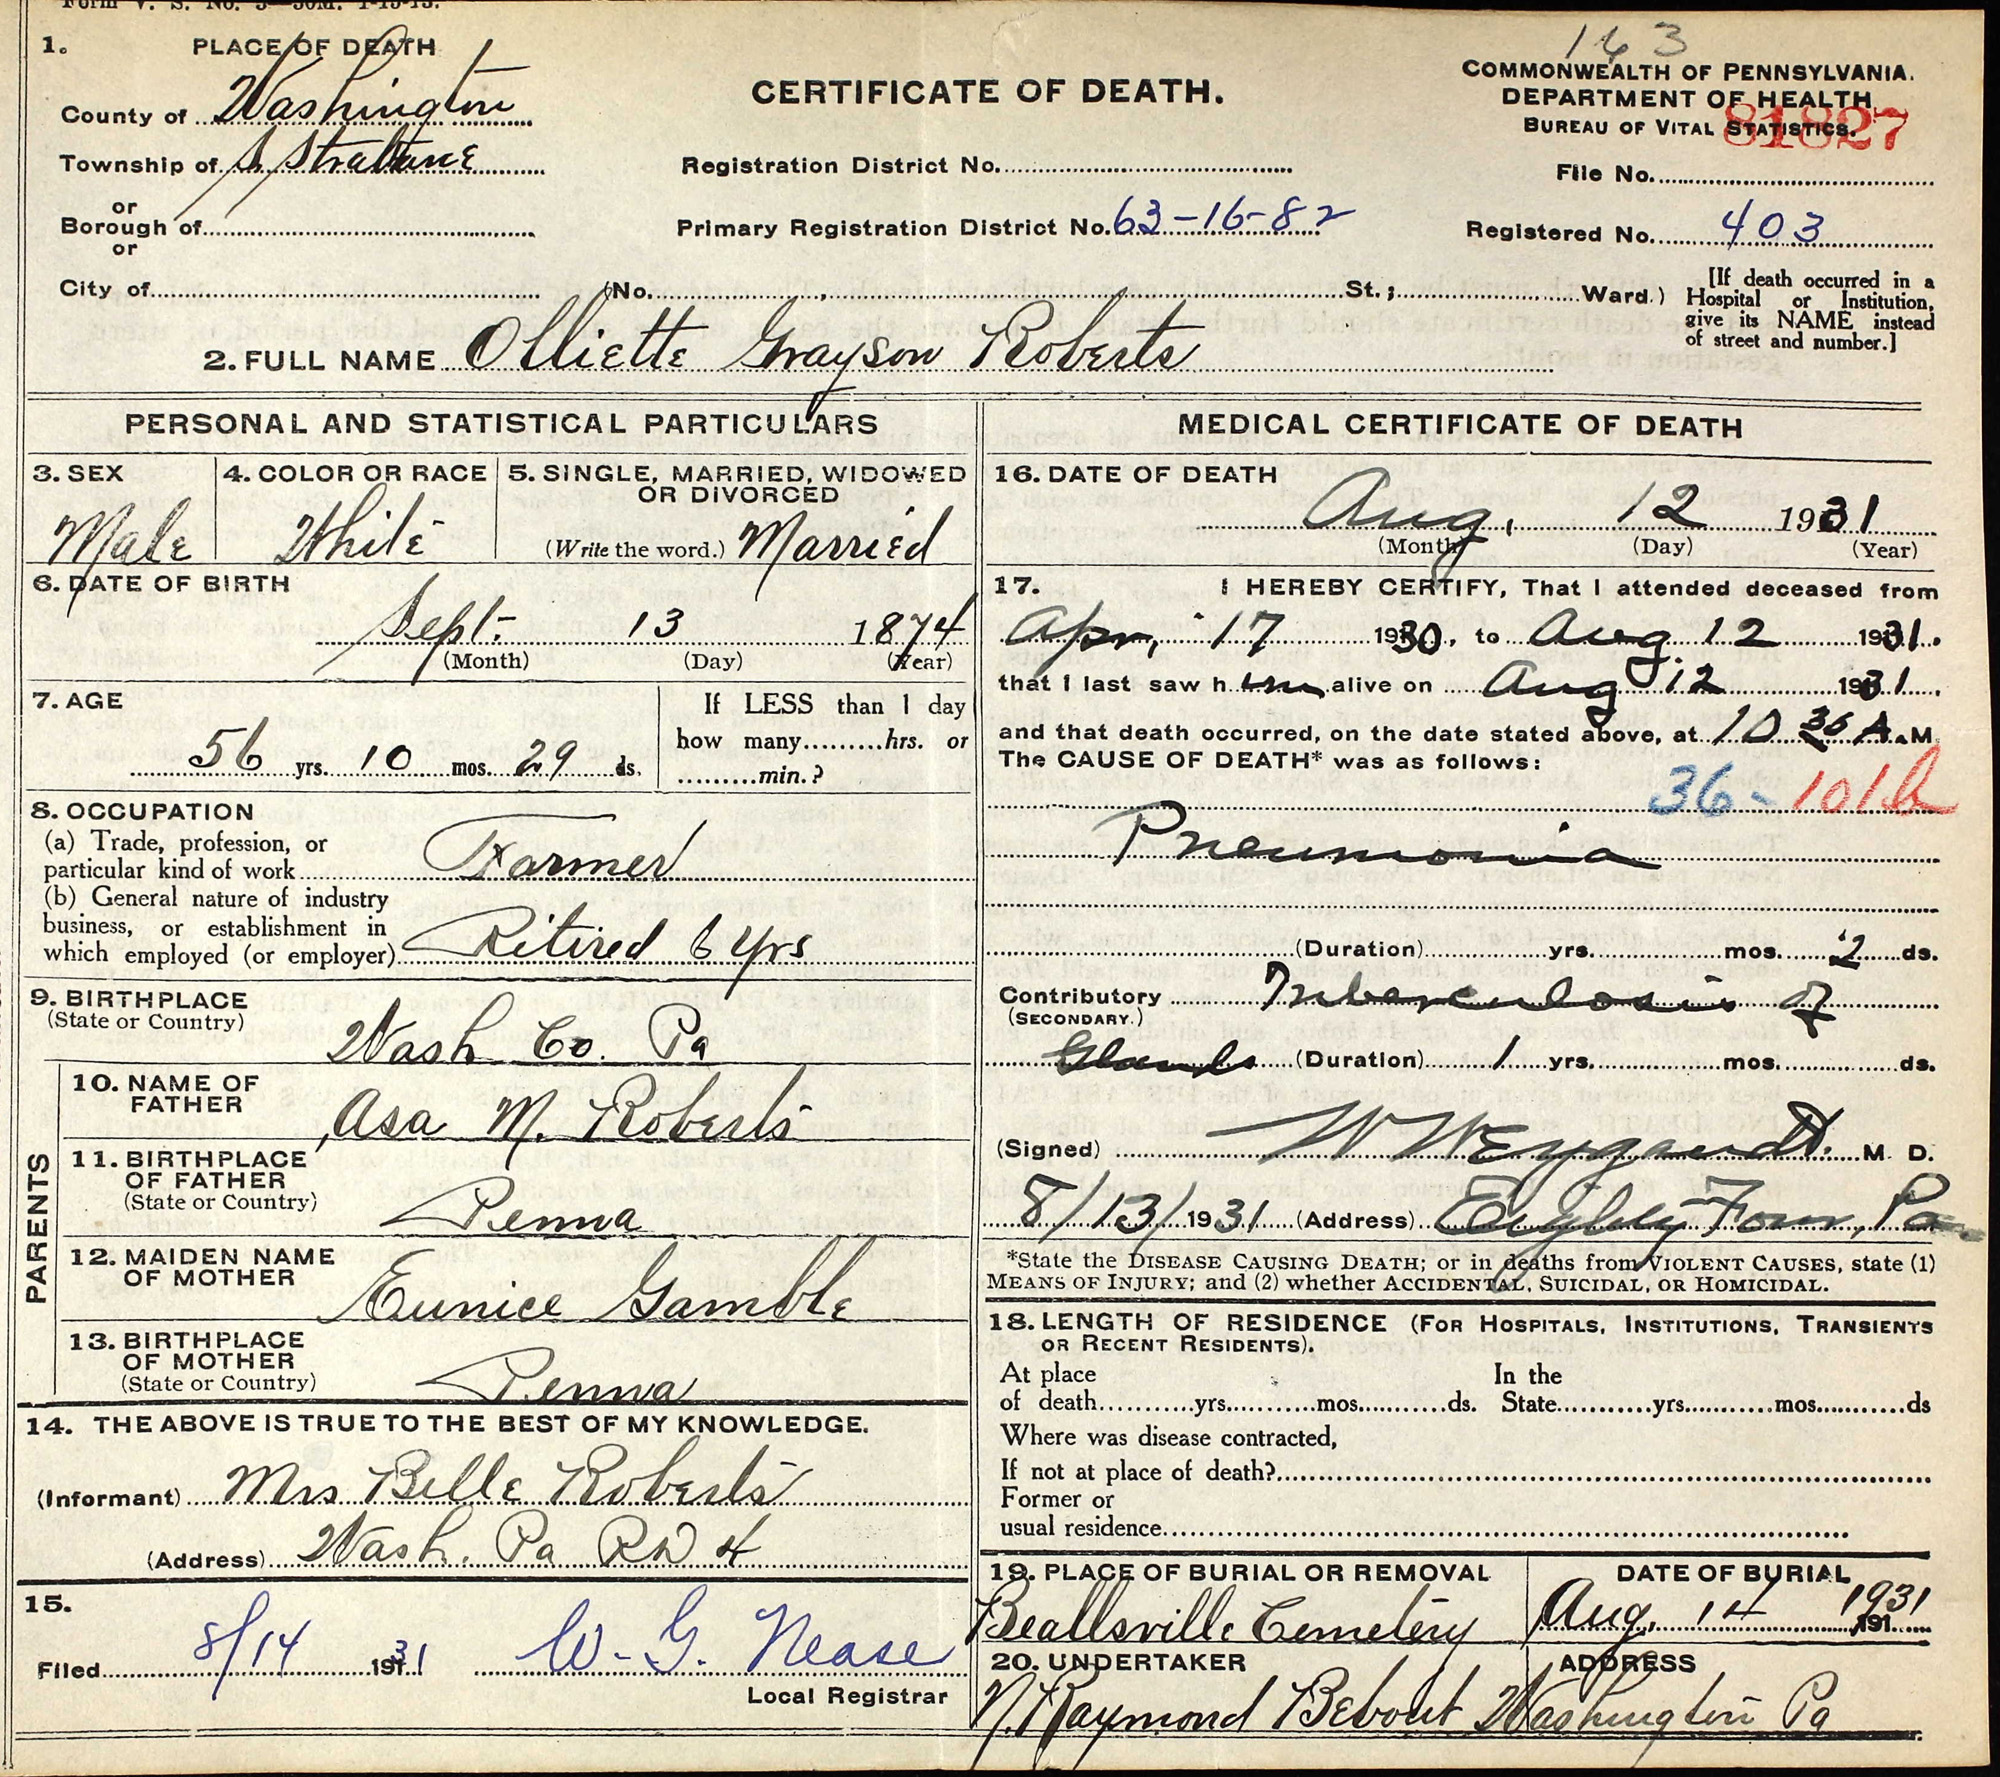 Form V. S. No. 5—50M. 1-15-13.
163
1. PLACE OF DEATH
County of Washington
Township of S. Strabane
or
Borough of
or
City of
CERTIFICATE OF DEATH.
Registration District No.
Primary Registration District No. 63-16-82
(No. , St.; Ward.)
COMMONWEALTH OF PENNSYLVANIA.
DEPARTMENT OF HEALTH
BUREAU OF VITAL STATISTICS.
81827
File No.
Registered No. 403
[If death occurred in a
Hospital or Institution,
give its NAME instead
of street and number.]
2. FULL NAME Olliette Grayson Roberts
PERSONAL AND STATISTICAL PARTICULARS
3. SEX
Male
4. COLOR OR RACE
White
5. SINGLE, MARRIED, WIDOWED
OR DIVORCED
(Write the word.) Married
6. DATE OF BIRTH
Sept. 13 1874
(Month) (Day) (Year)
7. AGE
56 yrs. 10 mos. 29 ds.
If LESS than 1 day
how many hrs. or
min.?
8. OCCUPATION
(a) Trade, profession, or
particular kind of work Farmer
(b) General nature of industry
business, or establishment in
which employed (or employer) Retired 6 yrs
9. BIRTHPLACE
(State or Country)
Wash Co. Pa
PARENTS
10. NAME OF
FATHER
Asa M. Roberts
11. BIRTHPLACE
OF FATHER
(State or Country)
Penna
12. MAIDEN NAME
OF MOTHER
Eunice Gamble
13. BIRTHPLACE
OF MOTHER
(State or Country)
Penna
14. THE ABOVE IS TRUE TO THE BEST OF MY KNOWLEDGE.
(Informant) Mrs Belle Roberts
(Address) Wash. Pa RD 4
15.
Filed 8/14 1931 W. G. Nease
Local Registrar
MEDICAL CERTIFICATE OF DEATH
16. DATE OF DEATH
Aug. 12 1931
(Month) (Day) (Year)
17. I HEREBY CERTIFY, That I attended deceased from
Apr. 17 1930, to Aug 12 1931.
that I last saw him alive on Aug 12 1931.
and that death occurred, on the date stated above, at 10 36 A.M.
The CAUSE OF DEATH* was as follows:
36- 101b
Pneumonia
(Duration) yrs. mos. 2 ds.
Contributory Tuberculosis of
(SECONDARY.)
Glands (Duration) 1 yrs. mos. ds.
(Signed) W W Weygandt. M. D.
8/13/1931 (Address) Eighty Four, Pa
*State the DISEASE CAUSING DEATH; or in deaths from VIOLENT CAUSES, state (1)
MEANS OF INJURY; and (2) whether ACCIDENTAL, SUICIDAL, OR HOMICIDAL.
18. LENGTH OF RESIDENCE (FOR HOSPITALS, INSTITUTIONS, TRANSIENTS
OR RECENT RESIDENTS).
At place In the
of death yrs. mos. ds. State yrs. mos. ds
Where was disease contracted,
If not at place of death?
Former or
usual residence
19. PLACE OF BURIAL OR REMOVAL
Beallsville Cemetery
DATE OF BURIAL
Aug. 14 1931 191
20. UNDERTAKER
N. Raymond Bebout
ADDRESS
Washington Pa